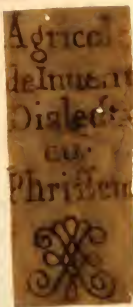 Agricol
deInuent
Dialect
cu.
Phrissem